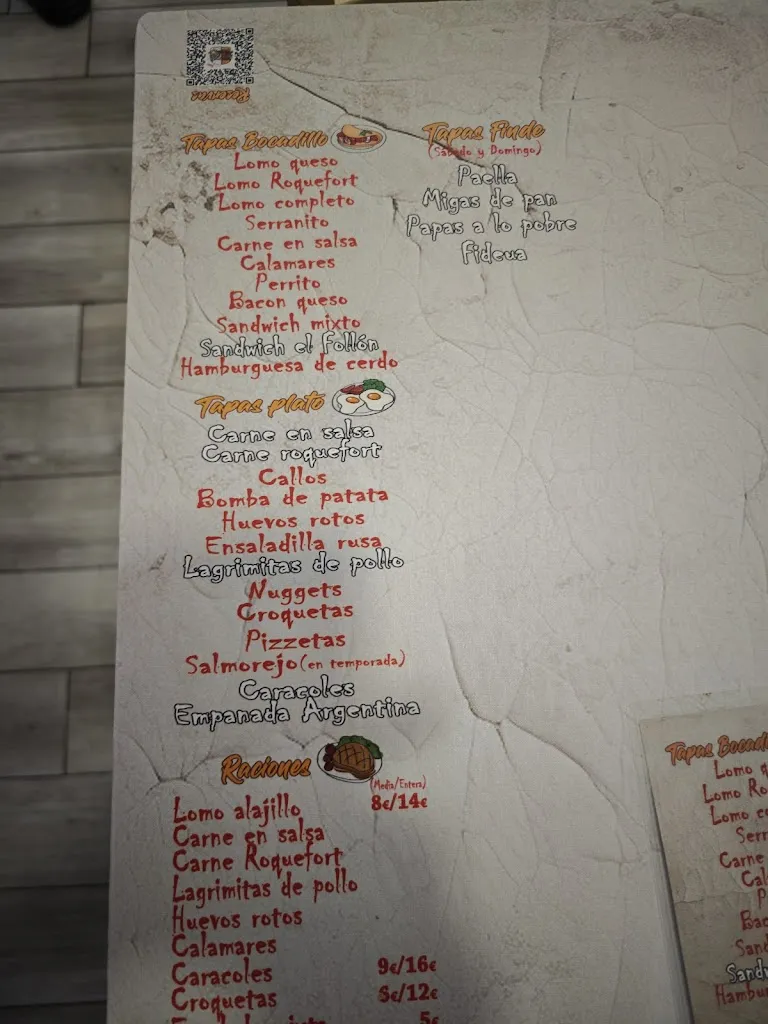 Reservas
Tapas Bocadillo
Lomo queso
Lomo Roquefort
Lomo completo
Serranito
Carne en salsa
Calamares
Perrito
Bacon queso
Sandwich mixto
Sandwich el Follón
Hamburguesa de cerdo
Tapas Finde
(Sábado y Domingo)
Paella
Migas de pan
Papas a lo pobre
Fideua
Tapas plato
Carne en salsa
Carne roquefort
Callos
Bomba de patata
Huevos rotos
Ensaladilla rusa
Lagrimitas de pollo
Nuggets
Croquetas
Pizzetas
Salmorejo (en temporada)
Caracoles
Empanada Argentina
Raciones
(Media/Entera)
Lomo alajillo 8€/14€
Carne en salsa
Carne Roquefort
Lagrimitas de pollo
Huevos rotos
Calamares
Caracoles 9€/16€
Croquetas /12€
5€
Tapas
Lomo
Lomo
Lomo
Carne
Hambur